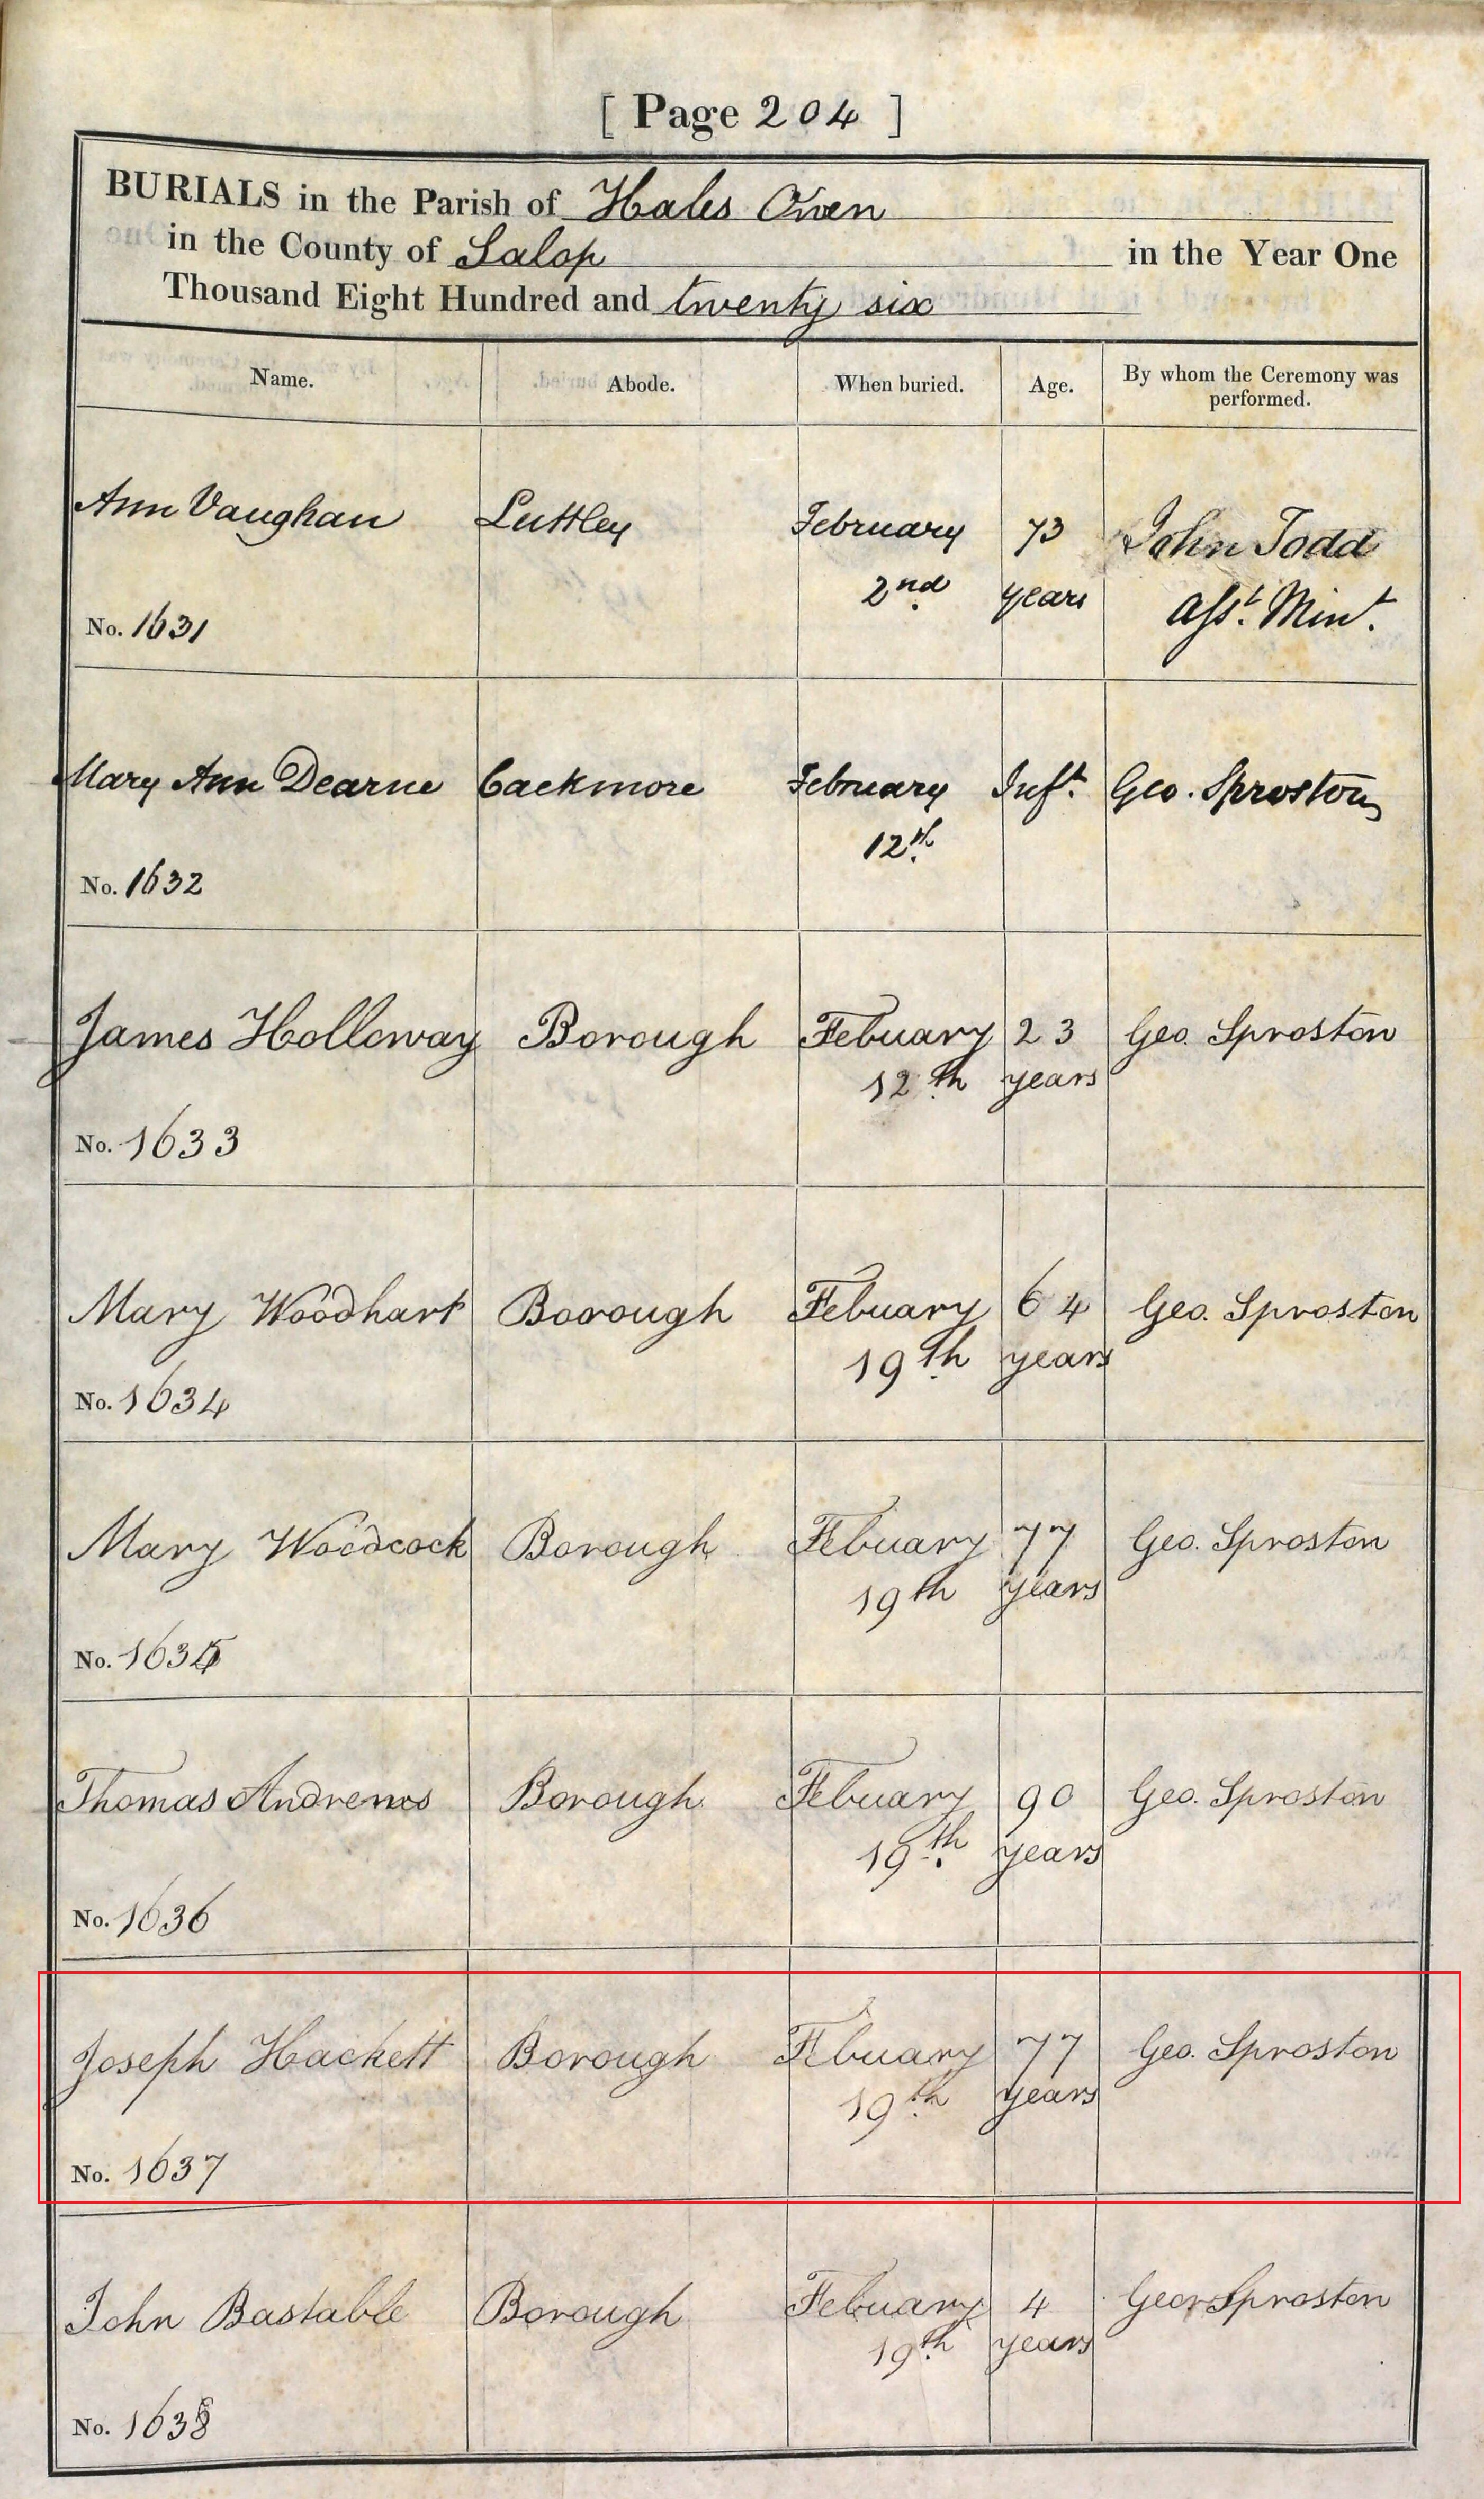 [ Page 204 ]
BURIALS in the Parish of Hales Owen
in the County of Salop in the Year One
Thousand Eight Hundred and twenty six
Name. Abode. When buried. Age. By whom the Ceremony was performed.
Ann Vaughan Luttley February 73 John Todd
2nd years Asst. Mint.
No. 1631
Mary Ann Dearne Cackmore February Inft. Geo. Sproston
12th
No. 1632
James Holloway Borough Febuary 23 Geo. Sproston
12th years
No. 1633
Mary Woodhart Borough Febuary 64 Geo. Sproston
19th years
No. 1634
Mary Woodcock Borough Febuary 77 Geo. Sproston
19th years
No. 1635
Thomas Andrews Borough Febuary 90 Geo. Sproston
19th years
No. 1636
Joseph Hackett Borough Febuary 77 Geo. Sproston
19th years
No. 1637
John Bastable Borough Febuary 4 Geo. Sproston
19th years
No. 1638